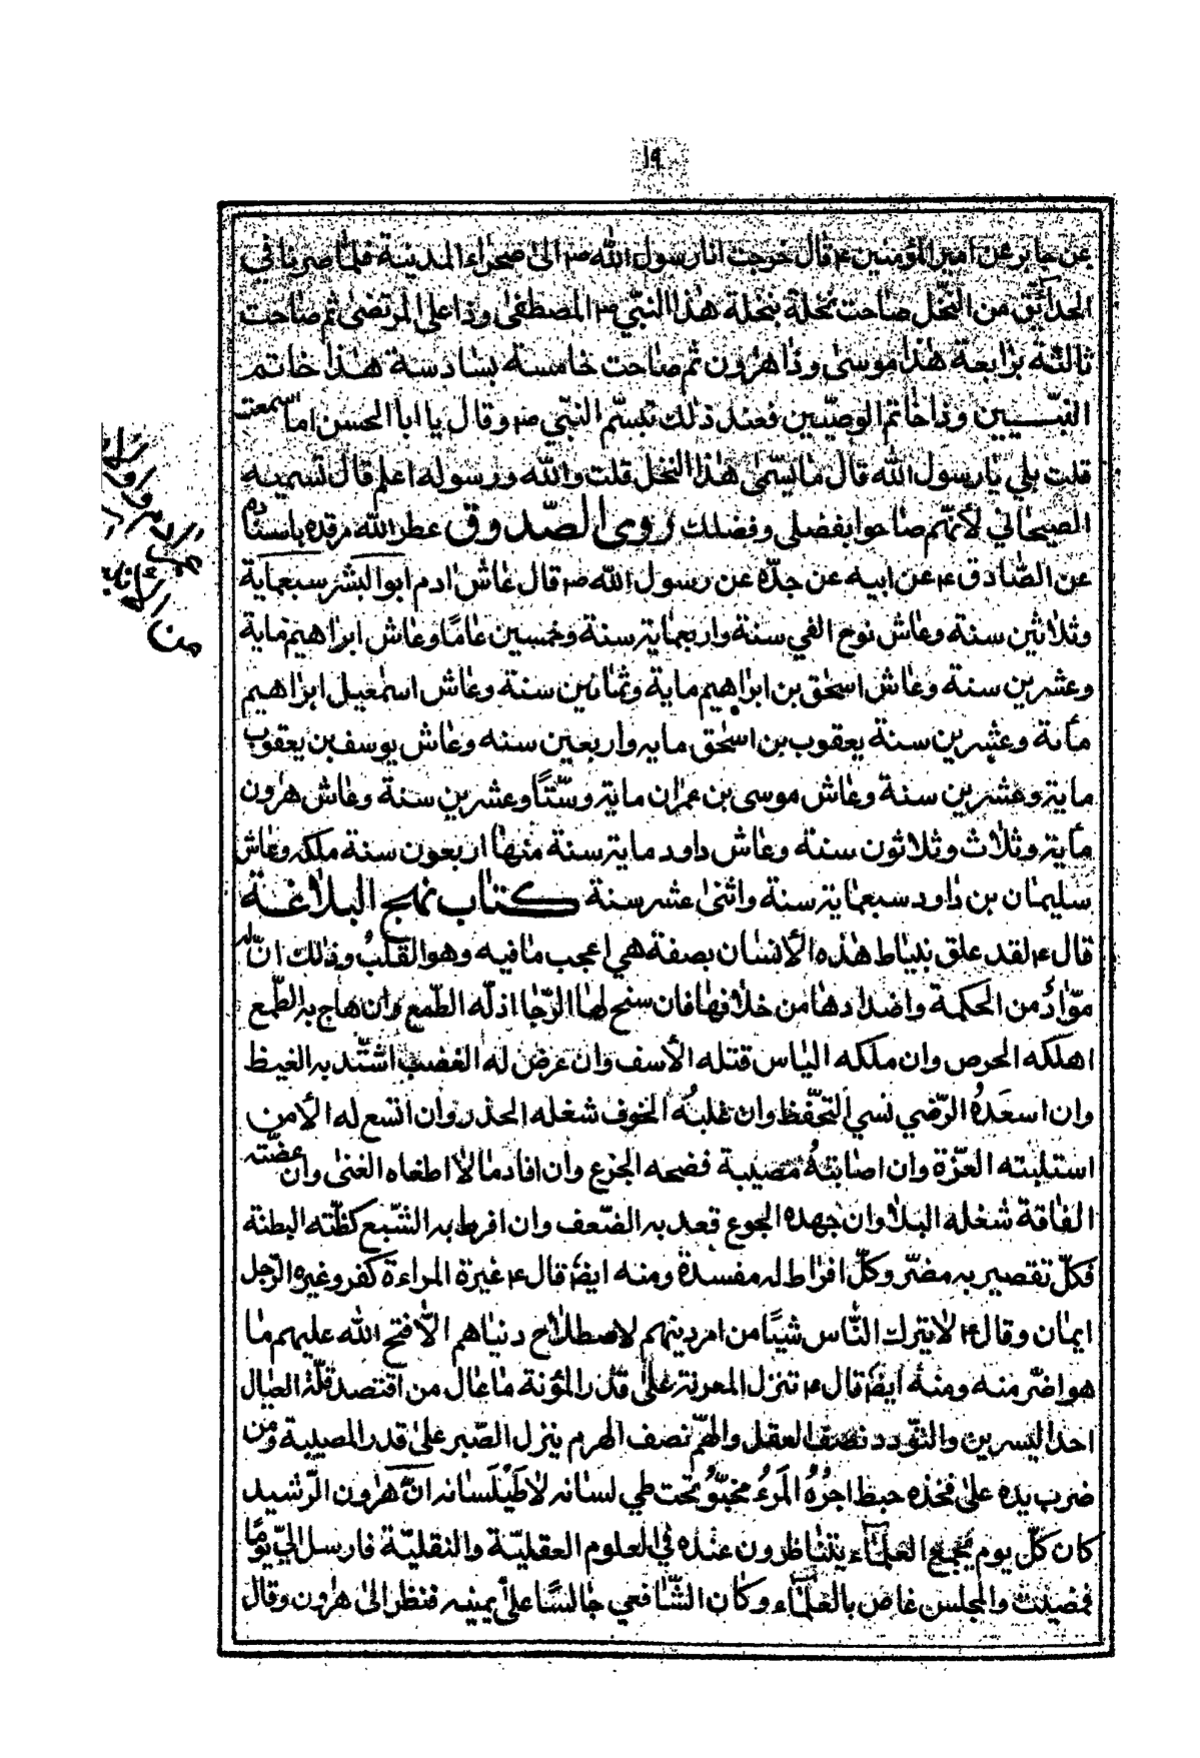 ١٩
عن جابر عن امير المؤمنين ع قال خرجت انا رسول الله ص الى صحراء المدينة فلما صرنا في
الحدائق من النخل صاحت نخلة بنخلة هذا النبي ص المصطفى وذا علي المرتضى ثم صاحت
ثالثة برابعة هذا موسى وذا هرون ثم صاحت خامسة بسادسة هذا خاتم
النبيين وذا خاتم الوصيين فعند ذلك تبسم النبي ص وقال يا ابا الحسن اما سمعت
قلت بلى يا رسول الله قال ما تسمى هذا النخل قلت والله ورسوله اعلم قال تسميه
الصيحاني لأنهم صاحوا بفضلي وفضلك روى الصدوق عطر الله مرقده باسناده
عن الصادق ع عن ابيه عن جده عن رسول الله ص قال عاش ادم ابو البشر سبعماية
وثلاثين سنة وعاش نوح الفي سنة واربعماية سنة وخمسين عامًا وعاش ابراهيم ماية
وعشرين سنة وعاش اسحق بن ابراهيم ماية وثمانين سنة وعاش اسمعيل ابراهيم
مأنة وعشرين سنة يعقوب بن اسحق مايه واربعين سنه وعاش يوسف بن يعقوب
ماية وعشرين سنة وعاش موسى بن عمران ماية وستًا وعشرين سنة وعاش هرون
مأية وثلاث وثلاثون سنة وعاش داود ماية سنة منها اربعون سنة ملكه وعاش
سليمان بن داود سبعماية سنة واثنى عشر سنة كتاب نهج البلاغة
قال ع لقد علق بنياط هذه الأنسان بصفة هي اعجب ما فيه وهو القلب وذلك ان له
موّاد من الحكمة واضدادها من خلافها فان سنح لها الرّجا اذله الطّمع وان هاج به الطّمع
اهلكه الحرص وان ملكه الياس قتله الأسف وان عرض له الغضب اشتد به الغيظ
وان اسعده الرّضي نسي التحفّظ وان غلبه الخوف شغله الحذر وان اتسع له الأمن
استلبته العزّة وان اصابته مصيبة فضحه الجزع وان افاد مالا اطغاه الغنى وان عضّته
الفاقة شغله البلا وان جهده الجوع قعد به الضّعف وان افرط به الشّبع كظّته البطنة
فكلّ تقصير به مضرّ وكلّ افراط له مفسدة ومنه ايضا قال ع غيرة المراءة كفر وغيره الرّجل
ايمان وقال ع لا يترك النّاس شيئًا من امر دينهم لاصطلاح دنياهم الّا فتح الله عليهم ما
هو اضرّ منه ومنه ايضا قال ع تنزل المعونة على قدر المؤنة ما عال من اقتصد قلّة العيال
احد اليسرين والتودد نصف العقل والهمّ نصف الهرم ينزل الصّبر على قدر المصيبة ومن
ضرب يده على فخذه حبط اجره المرء مخبوّ تحت طي لسانه لا طيلسانه ان هرون الرّشيد
كان كلّ يوم يجمع العلماء يتناظرون عنده في العلوم العقليّة والنقليّة فارسل اليّ يومًا
فمضيت والمجلس غاص بالعلماء وكان الشّافعي جالسًا على يمينه فنظر الى هرون وقال
من الأنا